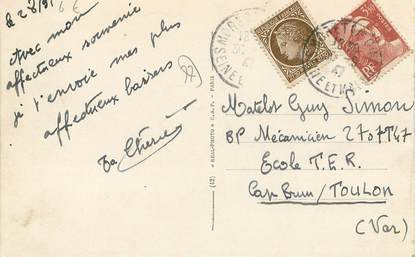 Avec mon
affectueux souvenir
je t'envoie mes plus
affectueux baisers
ta Thérèse
22
"REAL-PHOTO" C.A.P. - PARIS
(12)
RF
Matelot Guy Simon
BP Mécanicien 2707T47
Ecole T.E.R.
Cap Brun/TOULON
(Var)